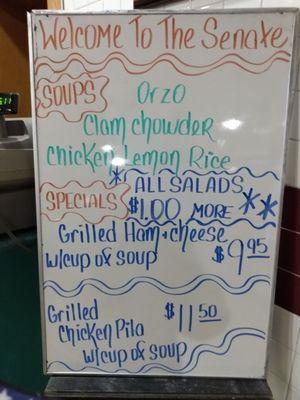 Welcome To The Senate
SOUPS
Orzo
Clam Chowder
Chicken Lemon Rice
* ALL SALADS
$1.00 MORE **
SPECIALS
Grilled Ham + cheese
w/cup of soup $9.95
Grilled $11.50
Chicken Pita
w/cup of soup